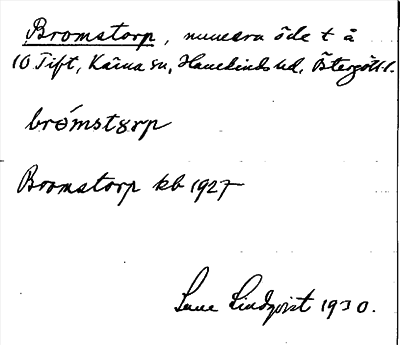 Bromstorp, numera öde t å
10 Tift, Kärna sn, Hanekinds hd, Östergötl.
brǿmstorp
Bromstorp kb 1927
Sune Lindqvist 1930.